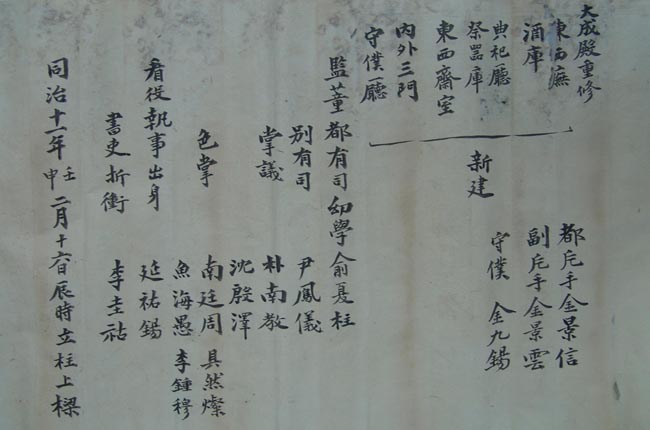 大成殿重修
東西廡
酒庫
典祀廳
祭器庫
東西齋室
內外三門
守僕廳
新建
都片手金景信
副片手金景雲
守僕 金九錫
監董都有司幼學俞夏柱
別有司 尹鳳儀
掌議 朴南敎
沈殷澤
色掌 南廷周 具然燦
魚海愚 李鍾穆
看役執事出身 延祐錫
書吏折衝 李圭祜
同治十一年壬申二月十六日辰時立柱上樑